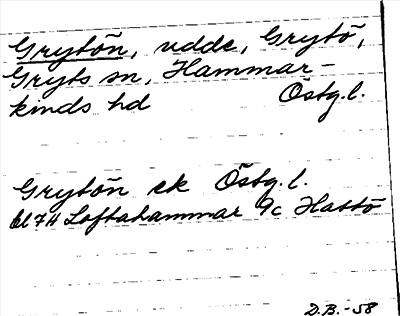 Grytön, udde, Grytö,
Gryts sn, Hammar-
kinds hd Östg.l.
Grytön ek Östg.l.
bl 7H Loftahammar 9c Hattö
D.B.-58